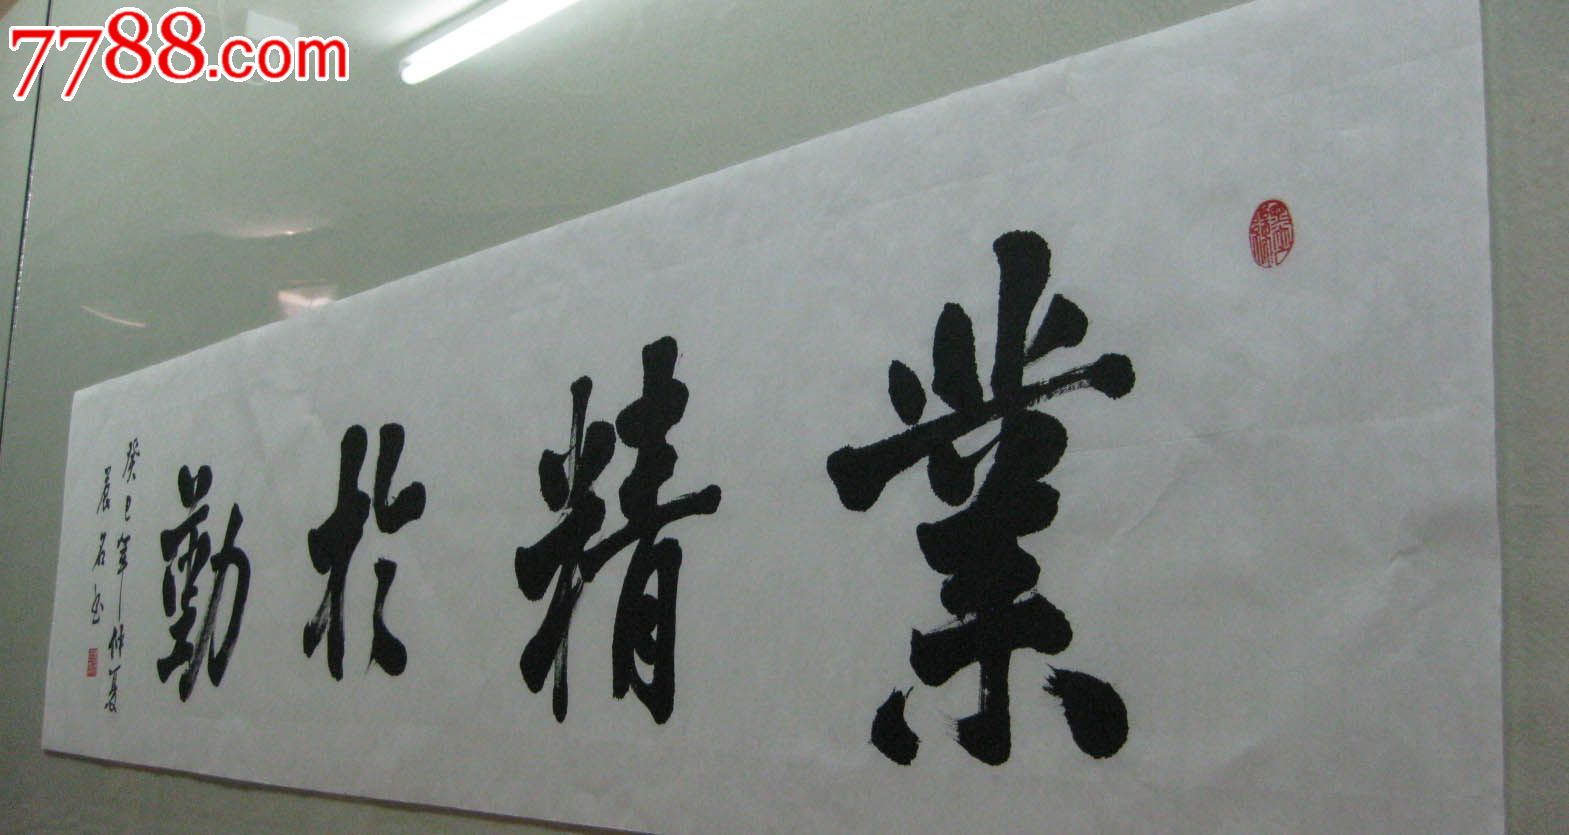 7788.com
業精於勤
癸巳年仲夏